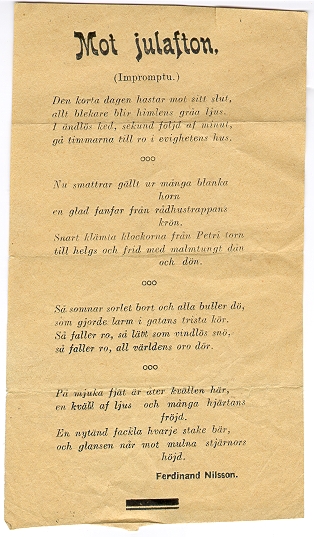 Mot julafton.
(Impromptu.)
Den korta dagen hastar mot sitt slut,
allt blekare blir himlens gråa ljus.
I ändlös ked, sekund följd af minut,
gå timmarna till ro i evighetens hus.
ooo
Nu smattrar gällt ur många blanka
horn
en glad fanfar från rådhustrappans
krön.
Snart klämta klockorna från Petri torn
till helgs och frid med malmtungt dån
och dön.
ooo
Så somnar sorlet bort och alla buller dö,
som gjorde larm i gatans trista kör.
Så faller ro, så lätt som vindlös snö,
så faller ro, all världens oro dör.
ooo
På mjuka fjät är åter kvällen här,
en kväll af ljus och många hjärtans
fröjd.
En nytänd fackla hvarje stake bär,
och glansen når mot mulna stjärnors
höjd.
Ferdinand Nilsson.